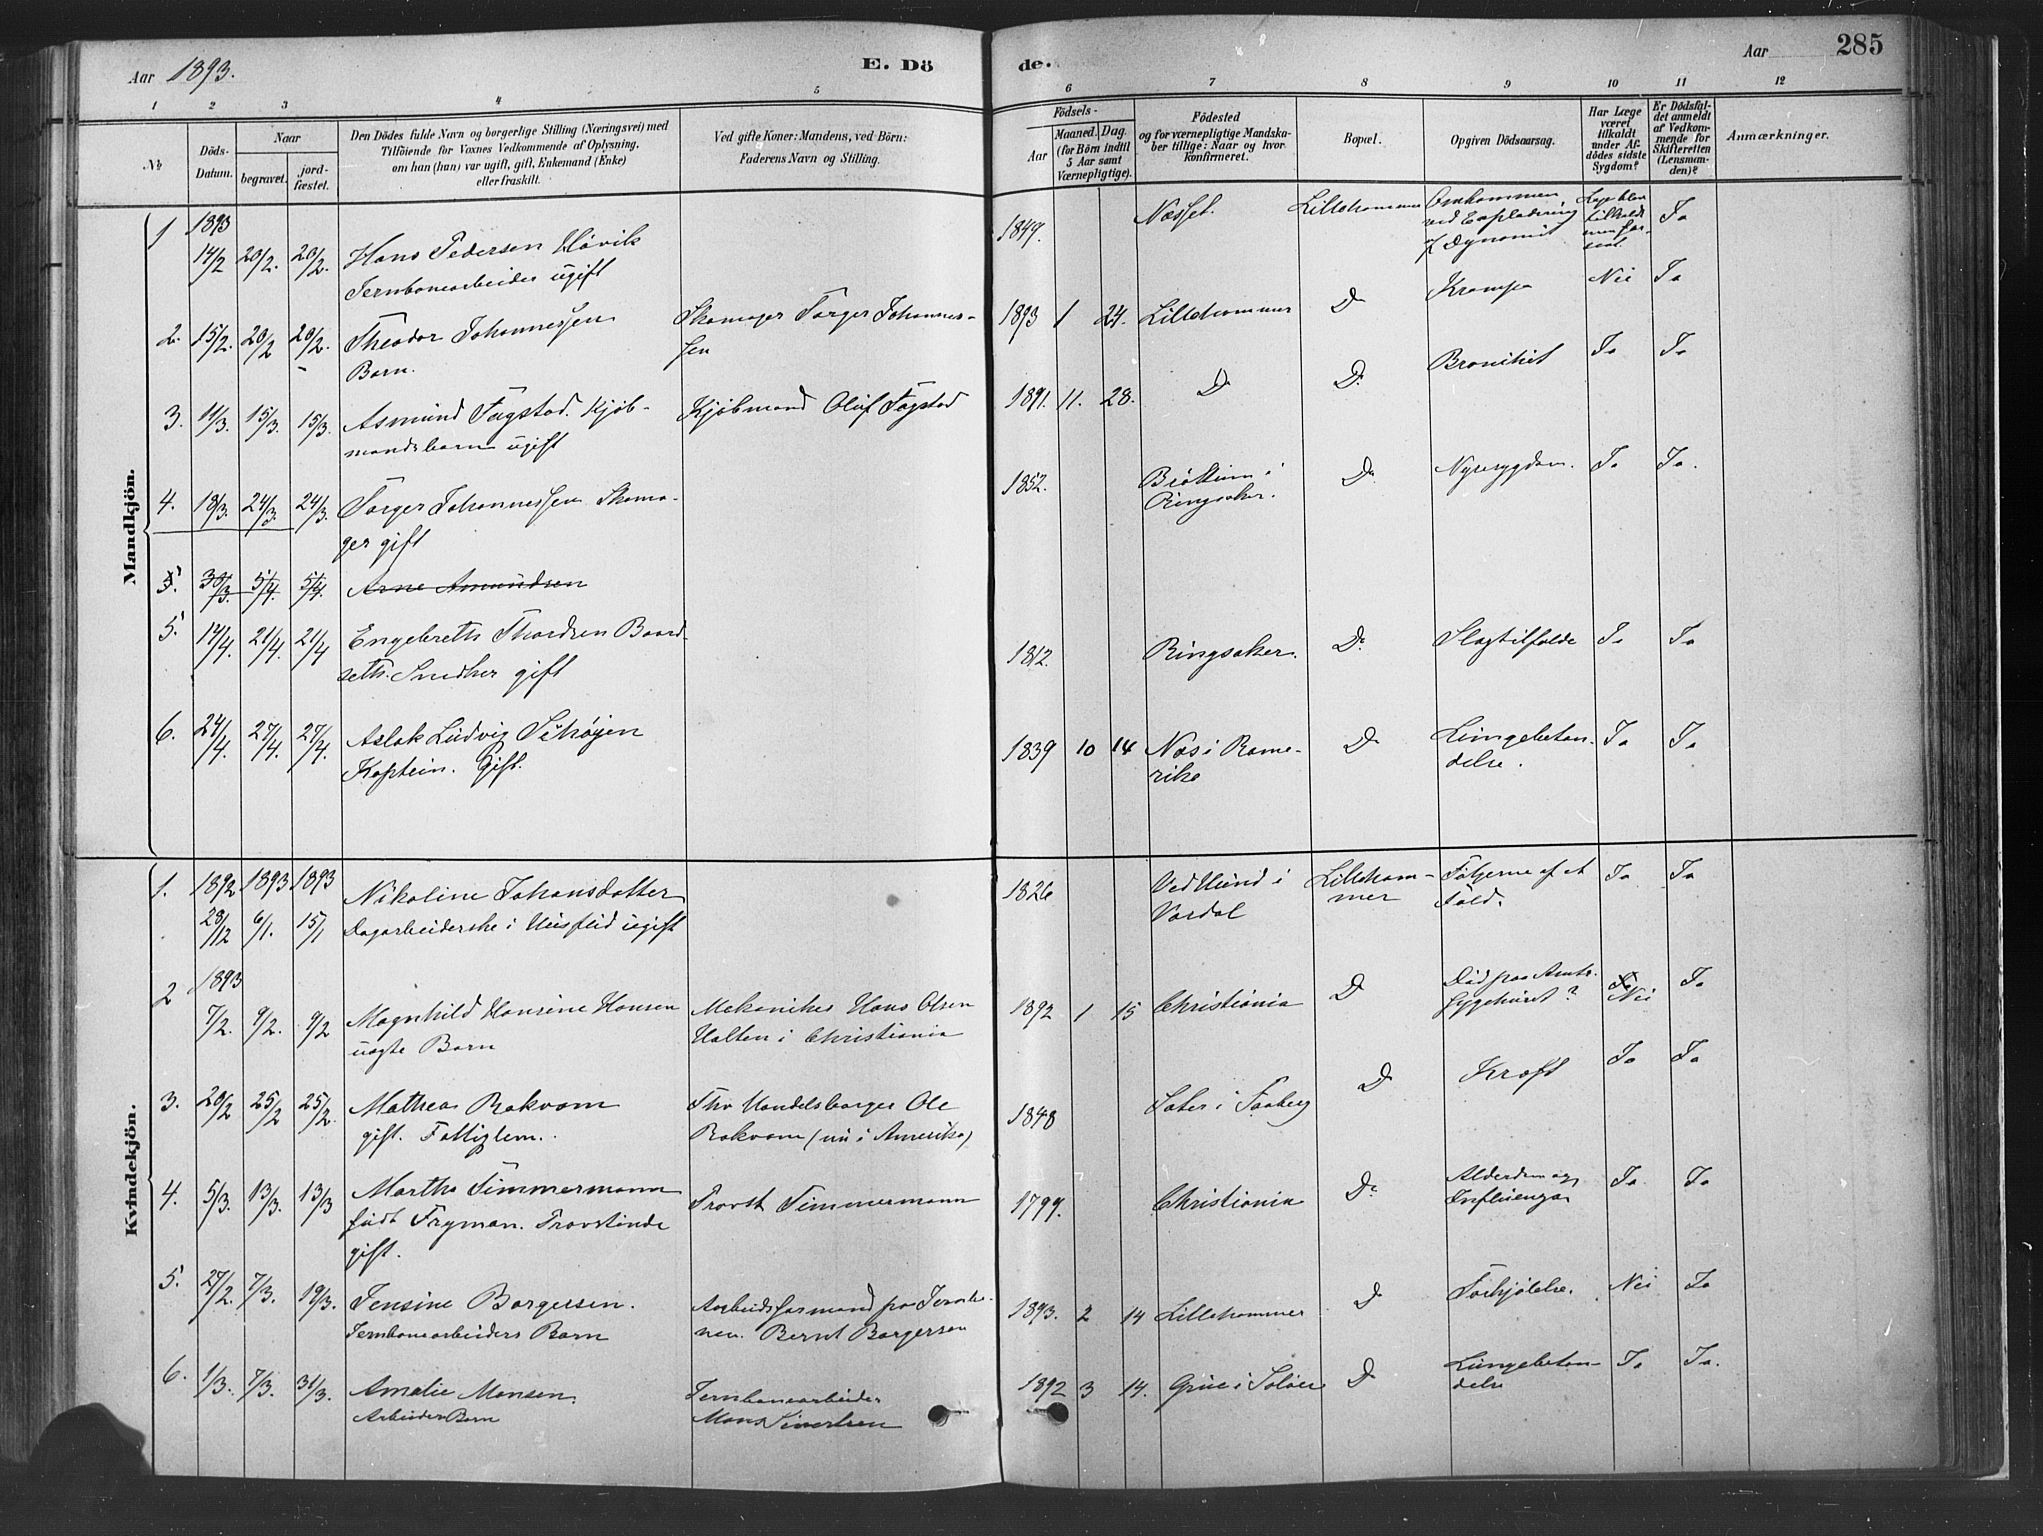 Aar 1893.
E. Dö
de.
Aar
285
1 2 3 4 5 6 7 8 9 10 11 12
No
Döds-Datum.
Naar
begravet.
jord-fæstet.
Den Dödes fulde Navn og borgerlige Stilling (Næringsvei) med
Tilföiende for Voxnes Vedkommende af Oplysning,
om han (hun) var ugift, gift, Enkemand (Enke)
eller fraskilt.
Ved gifte Koner: Mandens, ved Börn:
Faderens Navn og Stilling.
Födsels-
Aar
Maaned. Dag.
(for Börn indtil
5 Aar samt
Værnepligtige).
Födested
og for værnepligtige Mandska-
ber tillige: Naar og hvor
konfirmeret.
Bopæl.
Opgiven Dödsaarsag.
Har Læge
været
tilkaldt
under Af-
dödes sidste
Sygdom?
Er Dödsfal-
det anmeldt
af Vedkom-
mende for
Skifteretten
(Lensman-
den)?
Anmærkninger.
Mandkjön.
1 1893
14/2 20/2. 20/2. Hans Pedersen Hövik
Jernbanearbeider ugift
1849. Næsset. Lillehammer Omkommen
ved Explodering
af Dynamit
Ja
2. 15/2. 20/2 20/2. Theodor Johannessen
Barn.
Skomager Torger Johannes-
sen
1893 1 24. Lillehammer Do Krampe Nei Ja
3. 11/3. 15/3. 15/3. Asmund Fagstad. Kjöb-
mandsbarn ugift
Kjöbmand Oluf Fagstad
1891. 11. 28. Do Do Bronchit Ja Ja
4. 18/3. 24/3. 24/3. Torger Johannessen Skoma-
ger gift
1852. Bröttum i
Ringsaker. Do Nyresygdom. Ja Ja.
5. 30/3. 5/4. 5/4. Arne Amundsen
5. 14/4. 21/4. 21/4 Engebreth Thordsen Baard-
seth. Snedker gift
1812. Ringsaker. Do Slagtilfælde Ja Ja
6. 24/4 27/4. 27/4. Aslak Ludvig Schöyen
Kaptein. Gift.
1839 10 14 Næs i Rome-
rike Do Lungebetæn-
delse. Ja Ja
Kvindekjön.
1. 1892 1893 1893
28/12 6/1. 15/1 Nikoline Johansdatter
Dagarbeiderske i Husflid ugift
1826 Ved Mund i
Vardal Lilleham-
mer Fölgerne af et
Fald. Ja Ja
2 1893
7/2. 9/2. 9/2 Magnhild Hansine Hansen
uægte Barn
Mekaniker Hans Olsen
Holten i Christiania
1892 1 15 Christiania Do Död paa Amts-
sygehuset? Nei Ja
3. 20/2 25/2 25/2. Mathea Rakvam
gift. Fattiglem.
Fhv Handelsborger Ole
Rakvam (nu i Amerika)
1848 Sater i Faaberg Do Kræft Ja Ja
4. 5/3. 13/3. 13/3 Marthe Timmermann
födt Fryman. Provstinde
gift.
Provst Timmermann
1799. Christiania Do Alderdom og
Influenza Ja Ja
5. 27/2. 7/3. 19/3. Jensine Borgersen.
Jernbanearbeiders Barn
Arbeidsformand paa Jernba-
nen. Bernt Borgersen
1893. 2 14 Lillehammer Do Forkjölelse. Nei Ja
6. 1/3. 7/3. 31/3. Amalie Monsen.
Arbeider Barn
Jernbanearbeider
Mons Sivertsen
1892 3 14. Grue i Solöer Do Lungebetæn-
delse Ja Ja.